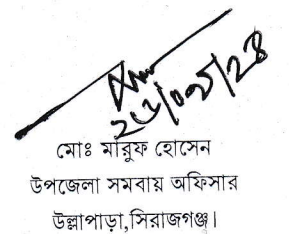 মোঃ মারুফ হোসেন
উপজেলা সমবায় অফিসার
উল্লাপাড়া,সিরাজগঞ্জ।